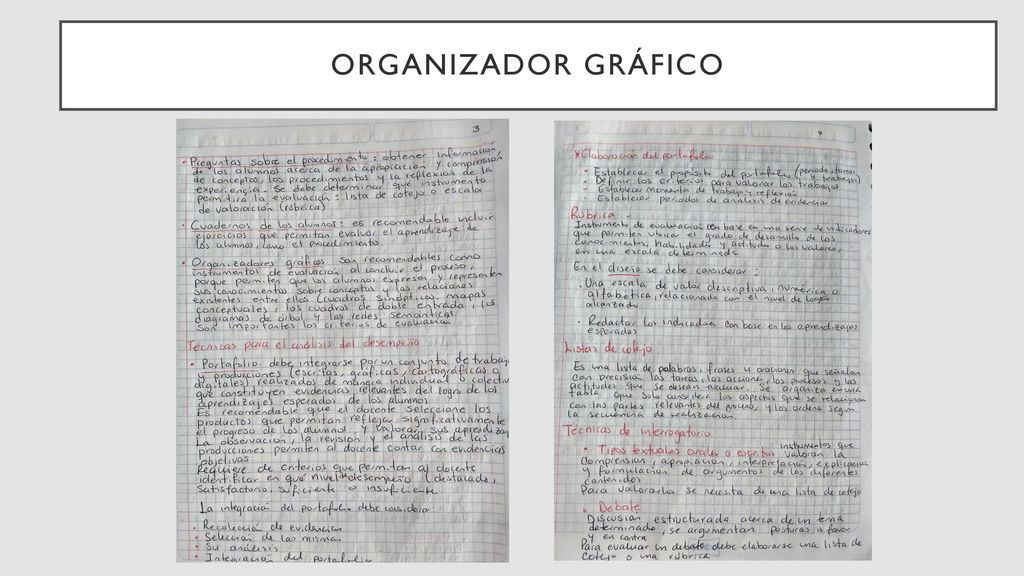 ORGANIZADOR GRÁFICO
3
• Preguntas sobre el procedimiento: obtener información
de los alumnos acerca de la apropiación y comprensión
de conceptos, los procedimientos y la reflexión de la
experiencia. Se debe determinar qué instrumento
permitirá la evaluación: lista de cotejo o escala
de valoración (rúbrica)
• Cuadernos de los alumnos: es recomendable incluir
ejercicios que permitan evaluar el aprendizaje de
los alumnos, como el procedimiento.
• Organizadores gráficos son recomendables como
instrumentos de evaluación al concluir el proceso,
porque permiten que los alumnos expresen y representen
sus conocimientos sobre conceptos y las relaciones
existentes entre ellos (cuadros sinópticos, mapas
conceptuales, los cuadros de doble entrada, los
diagramas de árbol y las redes semánticas.
Son importantes los criterios de evaluación.
Técnicas para el análisis del desempeño
• Portafolio: debe integrarse por un conjunto de trabaj
y producciones (escritas, gráficas, cartográficas o
digitales) realizados de manera individual o colectiv
que constituyen evidencias relevantes del logro de los
aprendizajes esperados de los alumnos
Es recomendable que el docente seleccione los
productos que permitan reflejar significativamente
el progreso de los alumnos, y valorar sus aprendizaj
La observación, la revisión y el análisis de las
producciones permiten al docente contar con evidencias
objetivas
Requiere de criterios que permitan al docente
identificar en qué nivel de desempeño (destacado,
satisfactorio, suficiente o insuficiente
La integración del portafolio debe considerar:
• Recolección de evidencias
• Selección de las mismas
• Su análisis
• Integración del portafolio
4
Elaboración del portafolio
• Establecer el propósito del portafolio (periodo, tareas y trabajos)
• Definir los criterios para valorar los trabajos
• Establecer momentos de trabajo y reflexión
• Establecer periodos de análisis de evidencias
Rúbrica
Instrumento de evaluación con base en una serie de indicadores
que permiten ubicar el grado de desarrollo de los
conocimientos, habilidades y actitudes o los valores,
en una escala determinada
En el diseño se debe considerar:
. Una escala de valor descriptiva, numérica o
alfabética, relacionada con el nivel de logro
alcanzado
. Redactar los indicadores con base en los aprendizajes
esperados
Listas de cotejo
Es una lista de palabras, frases u oraciones que señalan
con precisión las tareas, las acciones, los procesos y las
actitudes que se desean evaluar. Se organiza en una
tabla que solo considera los aspectos que se relacionan
con las partes relevantes del proceso, y los ordena según
la secuencia de realización.
Técnicas de interrogatorio
• Tipos textuales orales o escritos instrumentos que valoran la
comprensión, apropiación, interpretación, explicación
y formulación de argumentos de los diferentes
contenidos
Para valorarlos se necesita de una lista de cotejo
• Debate
Discusión estructurada acerca de un tema
determinado, se argumentan posturas a favor
y en contra
Para evaluar un debate debe elaborarse una lista de
cotejo o una rúbrica